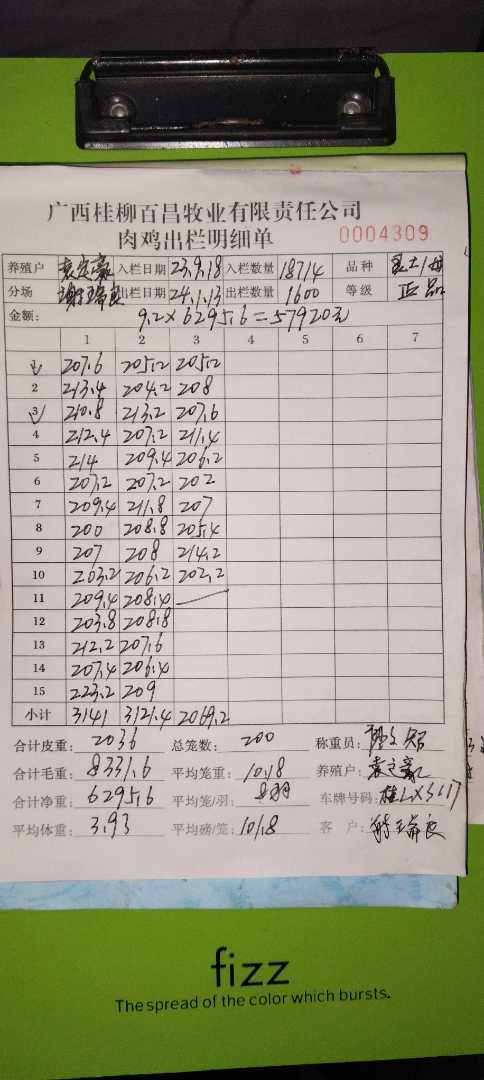 广西桂柳百昌牧业有限责任公司
肉鸡出栏明细单 0004309
养殖户 入栏日期 23.9.18 入栏数量 18714 品种
分场 出栏日期 24.1.13 出栏数量 1600 等级 正品
金额: 9.2×6295.6=57920元
1 2 3 4 5 6 7
1 207.6 205.2 205.2
2 213.4 204.2 208
3 210.8 213.2 207.6
4 212.4 207.2 211.4
5 214 209.4 206.2
6 207.2 207.2 202
7 209.4 211.8 207
8 200 208.8 205.4
9 207 208 214.2
10 203.2 206.2 202.2
11 209.4 208.4
12 203.8 208.8
13 212.2 207.6
14 207.4 206.4
15 223.2 209
小计 3141 3121.4 2069.2
合计皮重: 2036 总笼数: 200 称重员:
合计毛重: 8331.6 平均笼重: 10.18 养殖户:
合计净重: 6295.6 平均笼/羽: 8羽 车牌号码:
平均体重: 3.93 平均磅/笼: 10.18 客 户:
fizz
The spread of the color which bursts.